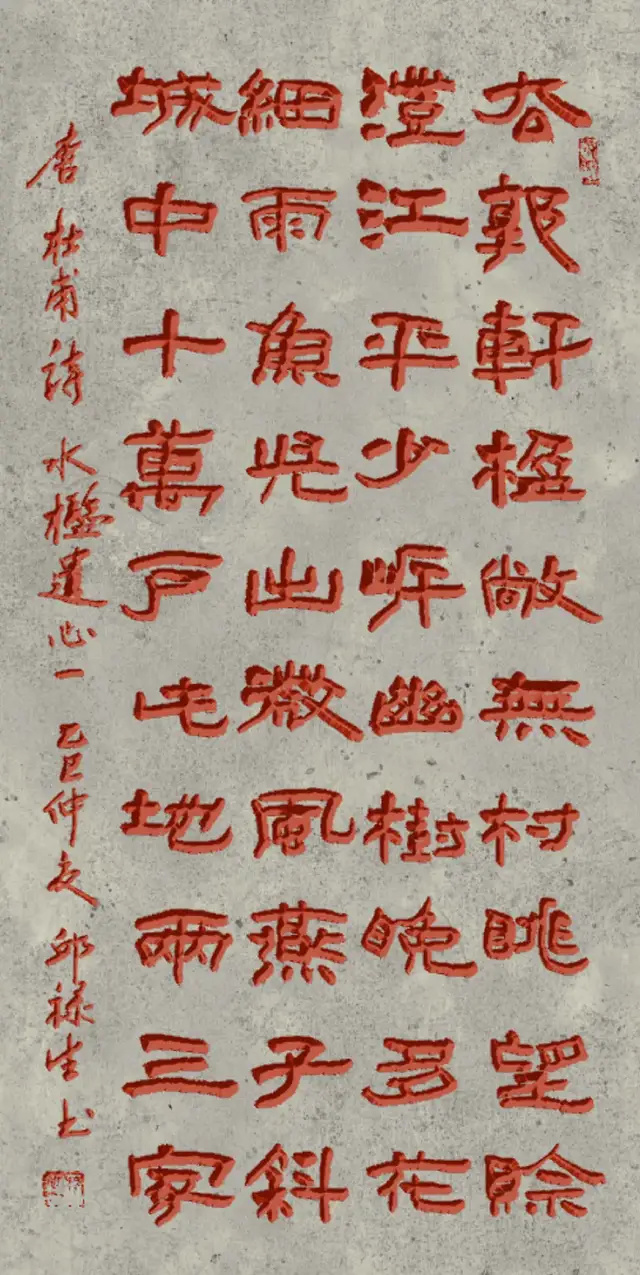 去郭軒楹敞無村眺望賒
澄江平少岸幽樹晚多花
細雨魚兒出微風燕子斜
城中十萬戶此地兩三家
唐杜甫詩水檻遣心一乙巳仲夏邱祿生书